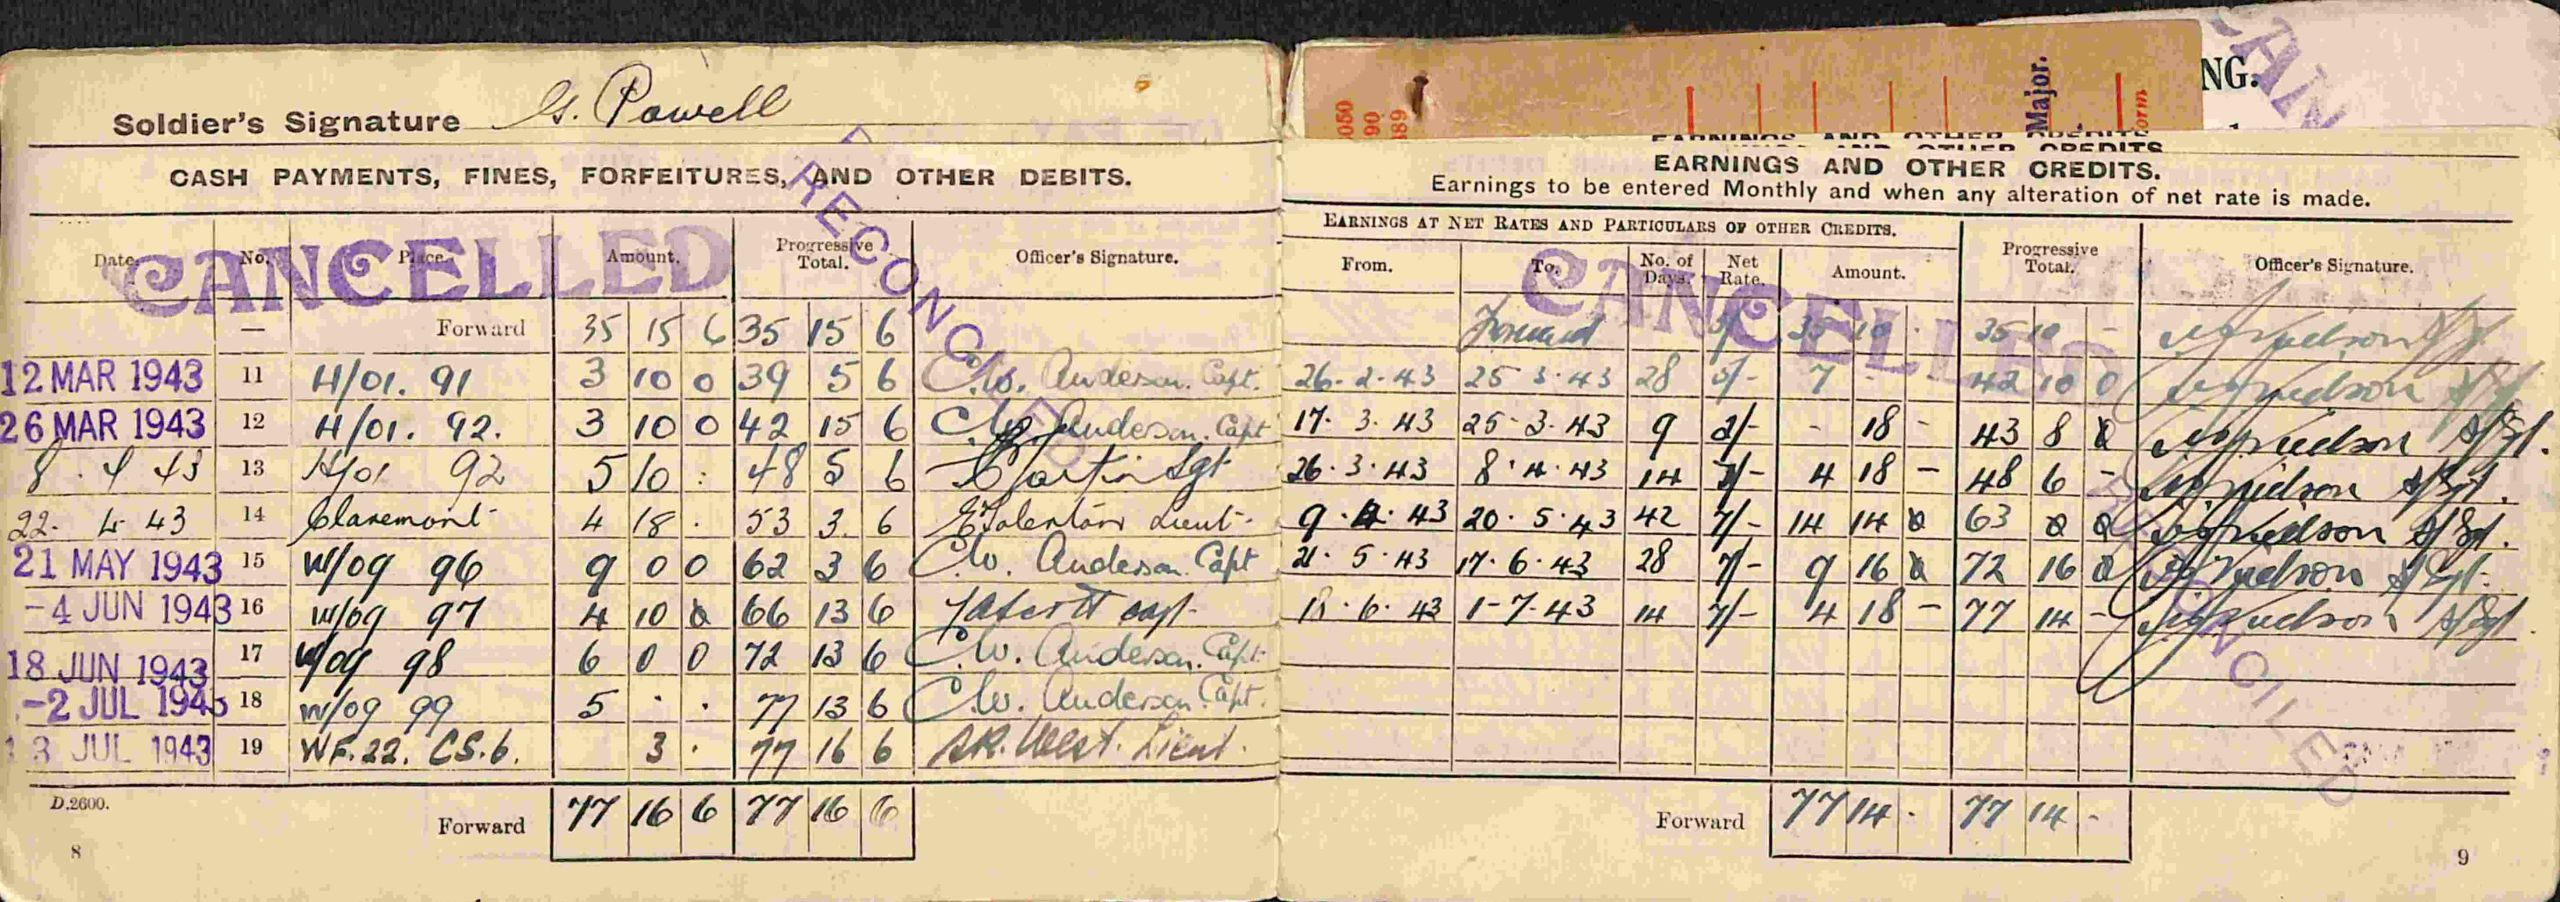 Soldier's Signature G. Powell
CASH PAYMENTS, FINES, FORFEITURES, AND OTHER DEBITS.
Date. No. Place. Amount. Progressive Total. Officer's Signature.
CANCELLED
RECONCILED
— Forward 35 15 6 35 15 6
12 MAR 1943 11 H/01. 91 3 10 0 39 5 6 C.W. Anderson. Capt.
26 MAR 1943 12 H/01. 92. 3 10 0 42 15 6 C.W. Anderson. Capt
8 . 4 43 13 H/01 92 5 10 : 48 5 6 Sgt
22. 4 43 14 Claremont 4 18 . 53 3. 6 Lieut.
21 MAY 1943 15 W/09 96 9 0 0 62 3 6 C.W. Anderson. Capt
-4 JUN 1943 16 W/09 97 4 10 0 66 13 6 Capt.
18 JUN 1943 17 W/09 98 6 0 0 72 13 6 C.W. Anderson. Capt.
-2 JUL 1943 18 W/09 99 5 . . 77 13 6 C.W. Anderson. Capt.
13 JUL 1943 19 WF.22. CS.6. 3 . 77 16 6 S.R. West. Lieut.
D.2600.
Forward 77 16 6 77 16 6
8
NG.
Major.
orm
050
90
389
EARNINGS AND OTHER CREDITS
EARNINGS AND OTHER CREDITS.
Earnings to be entered Monthly and when any alteration of net rate is made.
EARNINGS AT NET RATES AND PARTICULARS OF OTHER CREDITS.
From. To. No. of Days. Net Rate. Amount. Progressive Total. Officer's Signature.
CANCELLED
Forward 5/ 35 10 . 35 10 -
26.2.43 25 3.43 28 5/- 7 - - 42 10 0
17. 3. 43 25.3.43 9 2/- - 18 - 43 8 0 S/Sgt.
26.3.43 8.4.43 14 7/- 4 18 - 48 6 - S/Sgt.
9.4.43 20.5.43 42 7/- 14 14 0 63 0 0 S/Sgt.
21.5.43 17.6.43 28 7/- 9 16 0 72 16 0 S/Sgt.
18.6.43 1-7.43 14 7/- 4 18 - 77 14 - S/Sgt
RECONCILED
Forward 77 14 . 77 14 -
9